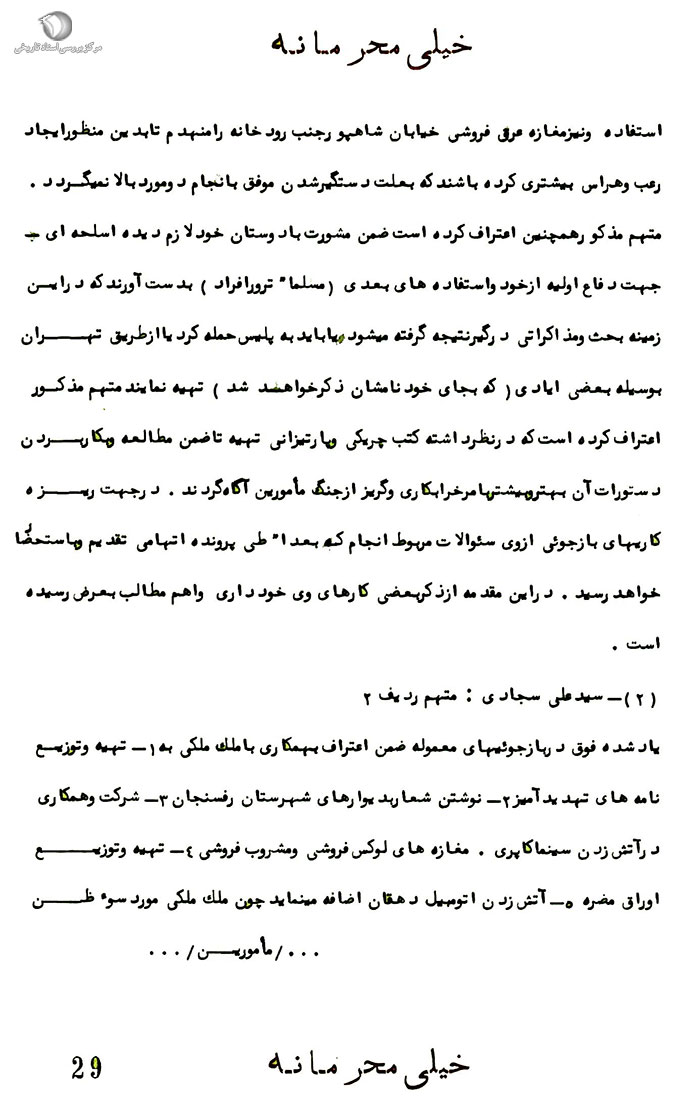 مرکز بررسی اسناد تاریخی
خیلی محرمانه
استفاده ونیزمغازه عرق فروشی خیابان شاهپورجنب رودخانه رامنهدم تابدین منظورایجاد
رعب وهراس بیشتری کرده باشندکه بعلت دستگیرشدن موفق بانجام دومورد بالا نمیگردد .
متهم مذکورهمچنین اعتراف کرده است ضمن مشورت بادوستان خودلازم دیده اسلحه ای ــ
جهت دفاع اولیه ازخود واستفاده های بعدی ( مسلما" ترورافراد ) بدست آورندکه دراین
زمینه بحث ومذاکراتی درگیرنتیجه گرفته میشود یاباید به پلیس حمله کرد یاازطریق تهران
بوسیله بعضی ایادی( که بجای خودنامشان ذکرخواهد شد ) تهیه نمایند متهم مذکور
اعتراف کرده است که درنظرداشته کتب چریکی وپارتیزانی تهیه تاضمن مطالعه وبکاربردن
دستورات آن بهتروبیشتربامرخرابکاری وگریز ازچنگ مأمورین آگاه گردند . درجهت ریزه
کاریهای بازجوئی ازوی سئوالات مربوط انجام که بعدا" طی پرونده اتهامی تقدیم وباستحضار
خواهد رسید . دراین مقدمه ازذکربعضی کارهای وی خودداری واهم مطالب بعرض رسیده
است .
(۲)ــ سیدعلی سجادی : متهم ردیف ۲
یادشده فوق دربازجوئیهای معموله ضمن اعتراف بهمکاری باملك ملکی به ۱ــ تهیه وتوزیع
نامه های تهدیدآمیز ۲ــ نوشتن شعاربدیوارهای شهرستان رفسنجان ۳ــ شرکت وهمکاری
درآتش زدن سینماکاپری . مغازه های لوکس فروشی ومشروب فروشی ٤ــ تهیه وتوزیع
اوراق مضره ٥ــ آتش زدن اتومبیل دهقان اضافه مینماید چون ملك ملکی مورد سوء ظن
. . . /مأمورین/ . . .
29
خیلی محرمانه